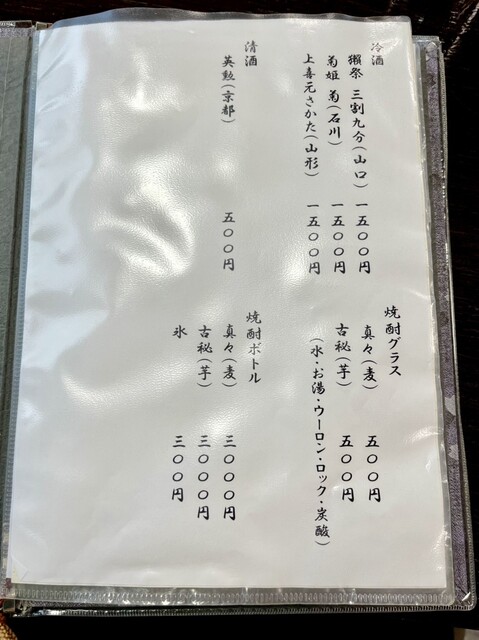 冷酒
獺祭 三割九分(山口)一五〇〇円
菊姫 菊(石川) 一五〇〇円
上喜元さかた(山形) 一五〇〇円
清酒
英勲(京都) 五〇〇円
焼酎グラス
真々(麦) 五〇〇円
古秘(芋) 五〇〇円
(水・お湯・ウーロン・ロック・炭酸)
焼酎ボトル
真々(麦) 三〇〇〇円
古秘(芋) 三〇〇〇円
氷 三〇〇円